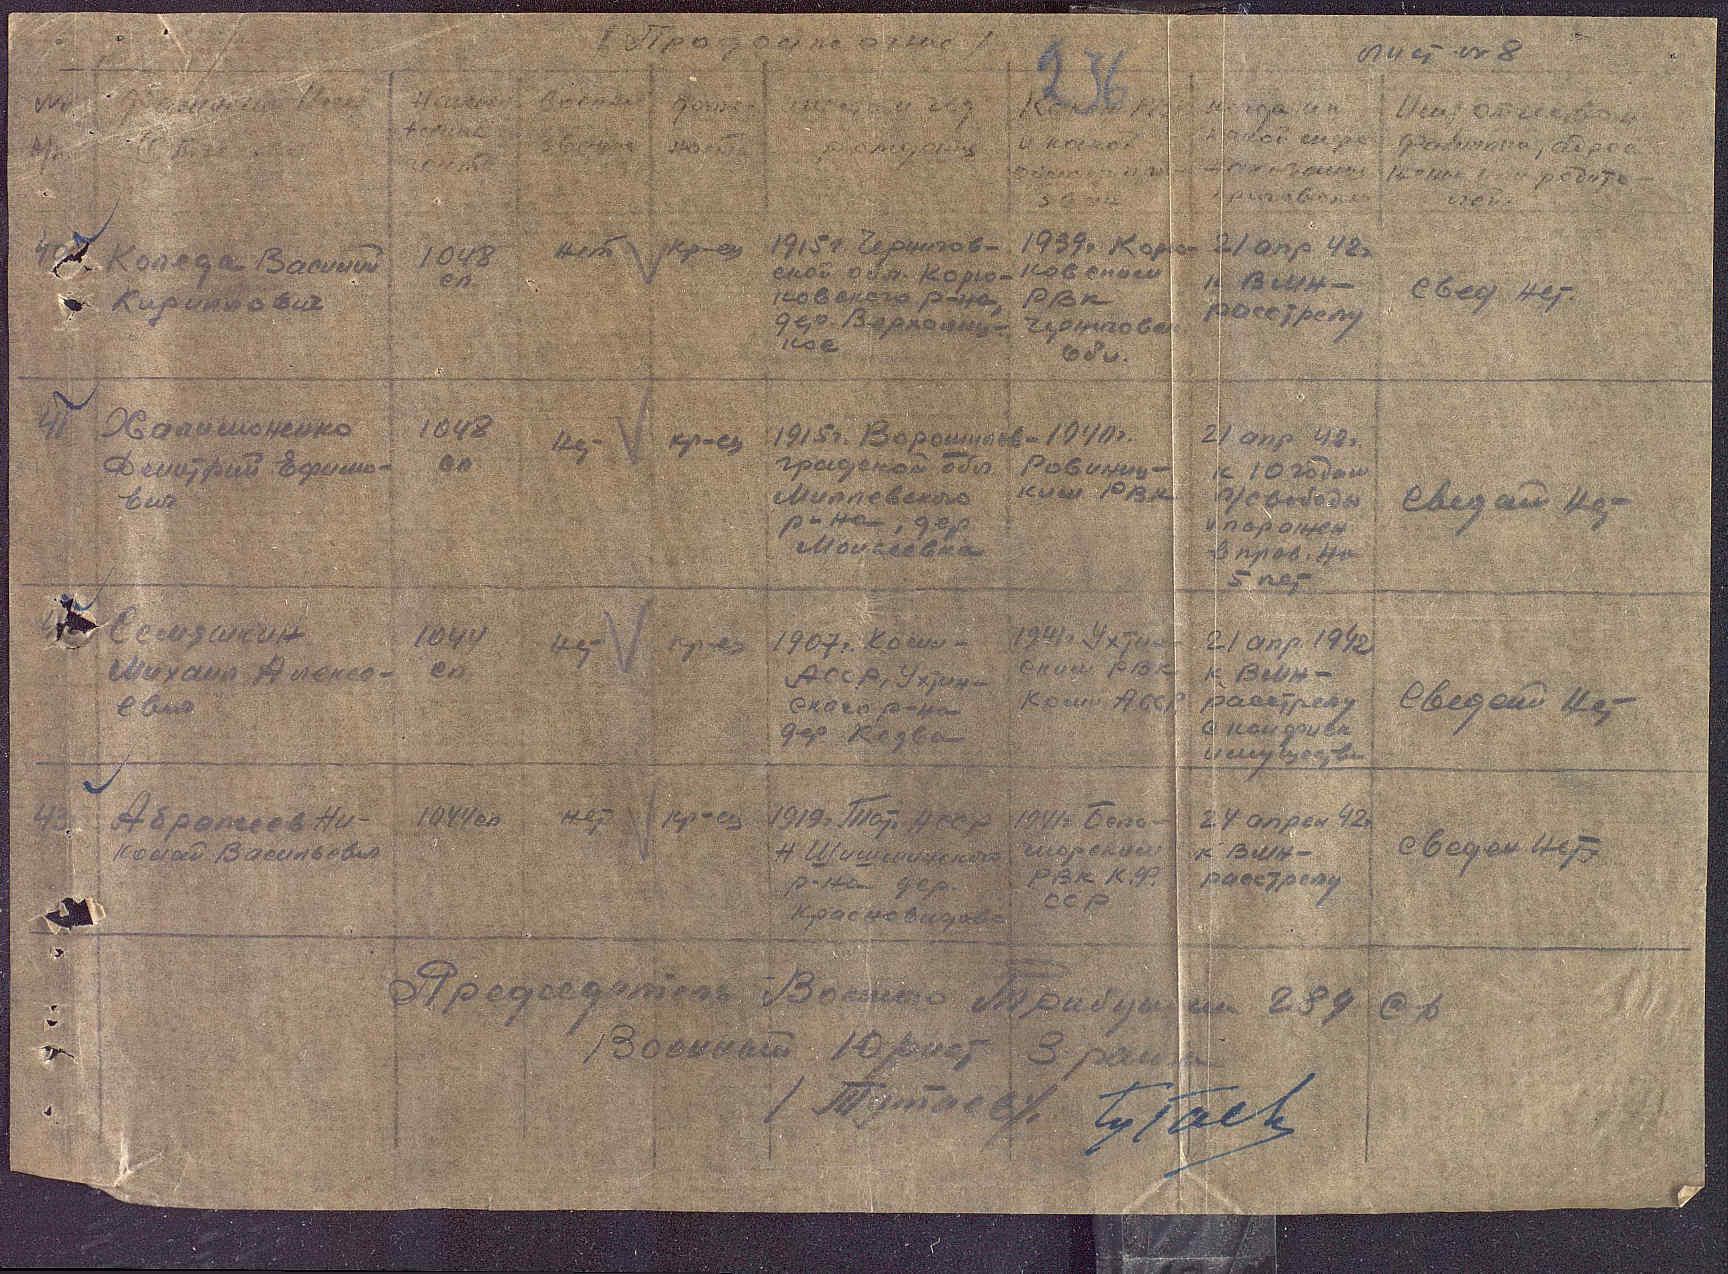 / Продолжение /
236
лист № 8
№ Фамилия Имя
п/п Отчество
Воинск звание
место и год рождения
Каким РВК и какой
когда и к какой мере
Имя отчество
фамилия, адрес
жены или родите-
лей.
40 Коледа Василий
Кириллович
1048
сп
нет
кр-ец
1915г. Чернигов-
ской обл. Корю-
ковского р-на,
дер.
кое
1939г. Корю-
ковским
РВК
Черниговск
обл.
21 апр 42г
к ВМН-
расстрелу
свед нет.
41 Халимоненко
Дмитрий Ефимо-
вич
1048
сп
нет
кр-ец
1915г. Ворошилов-
градской обл
р-на, дер
Моисеевка
1940г.
РВК
21 апр 42г.
к 10 годам
л/свободы
и поражен
в прав. на
5 лет
сведений нет
42 Семяшкин
Михаил Алексе-
евич
1044
сп
нет
кр-ец
1907г. Коми-
АССР, Ухтин-
ского р-на
дер Кедва
1941г. Ухтин-
ским РВК
Коми АССР
21 апр. 1942
к ВМН-
расстрелу
с конфиск
имущества
сведений нет
43 Абрамов Ни-
колай Васильевич
1044 сп
нет
кр-ец
1919г. Тат. АССР
Н
р-на дер.
Красновидово
1941г. Бело-
морским
РВК К.Ф.
ССР
24 апрел 42г
к ВМН-
расстрелу
сведен нет
Председатель Военного Трибунала 289 сд
Военный Юрист 3 ранга
/ Тутаев /. Тутаев